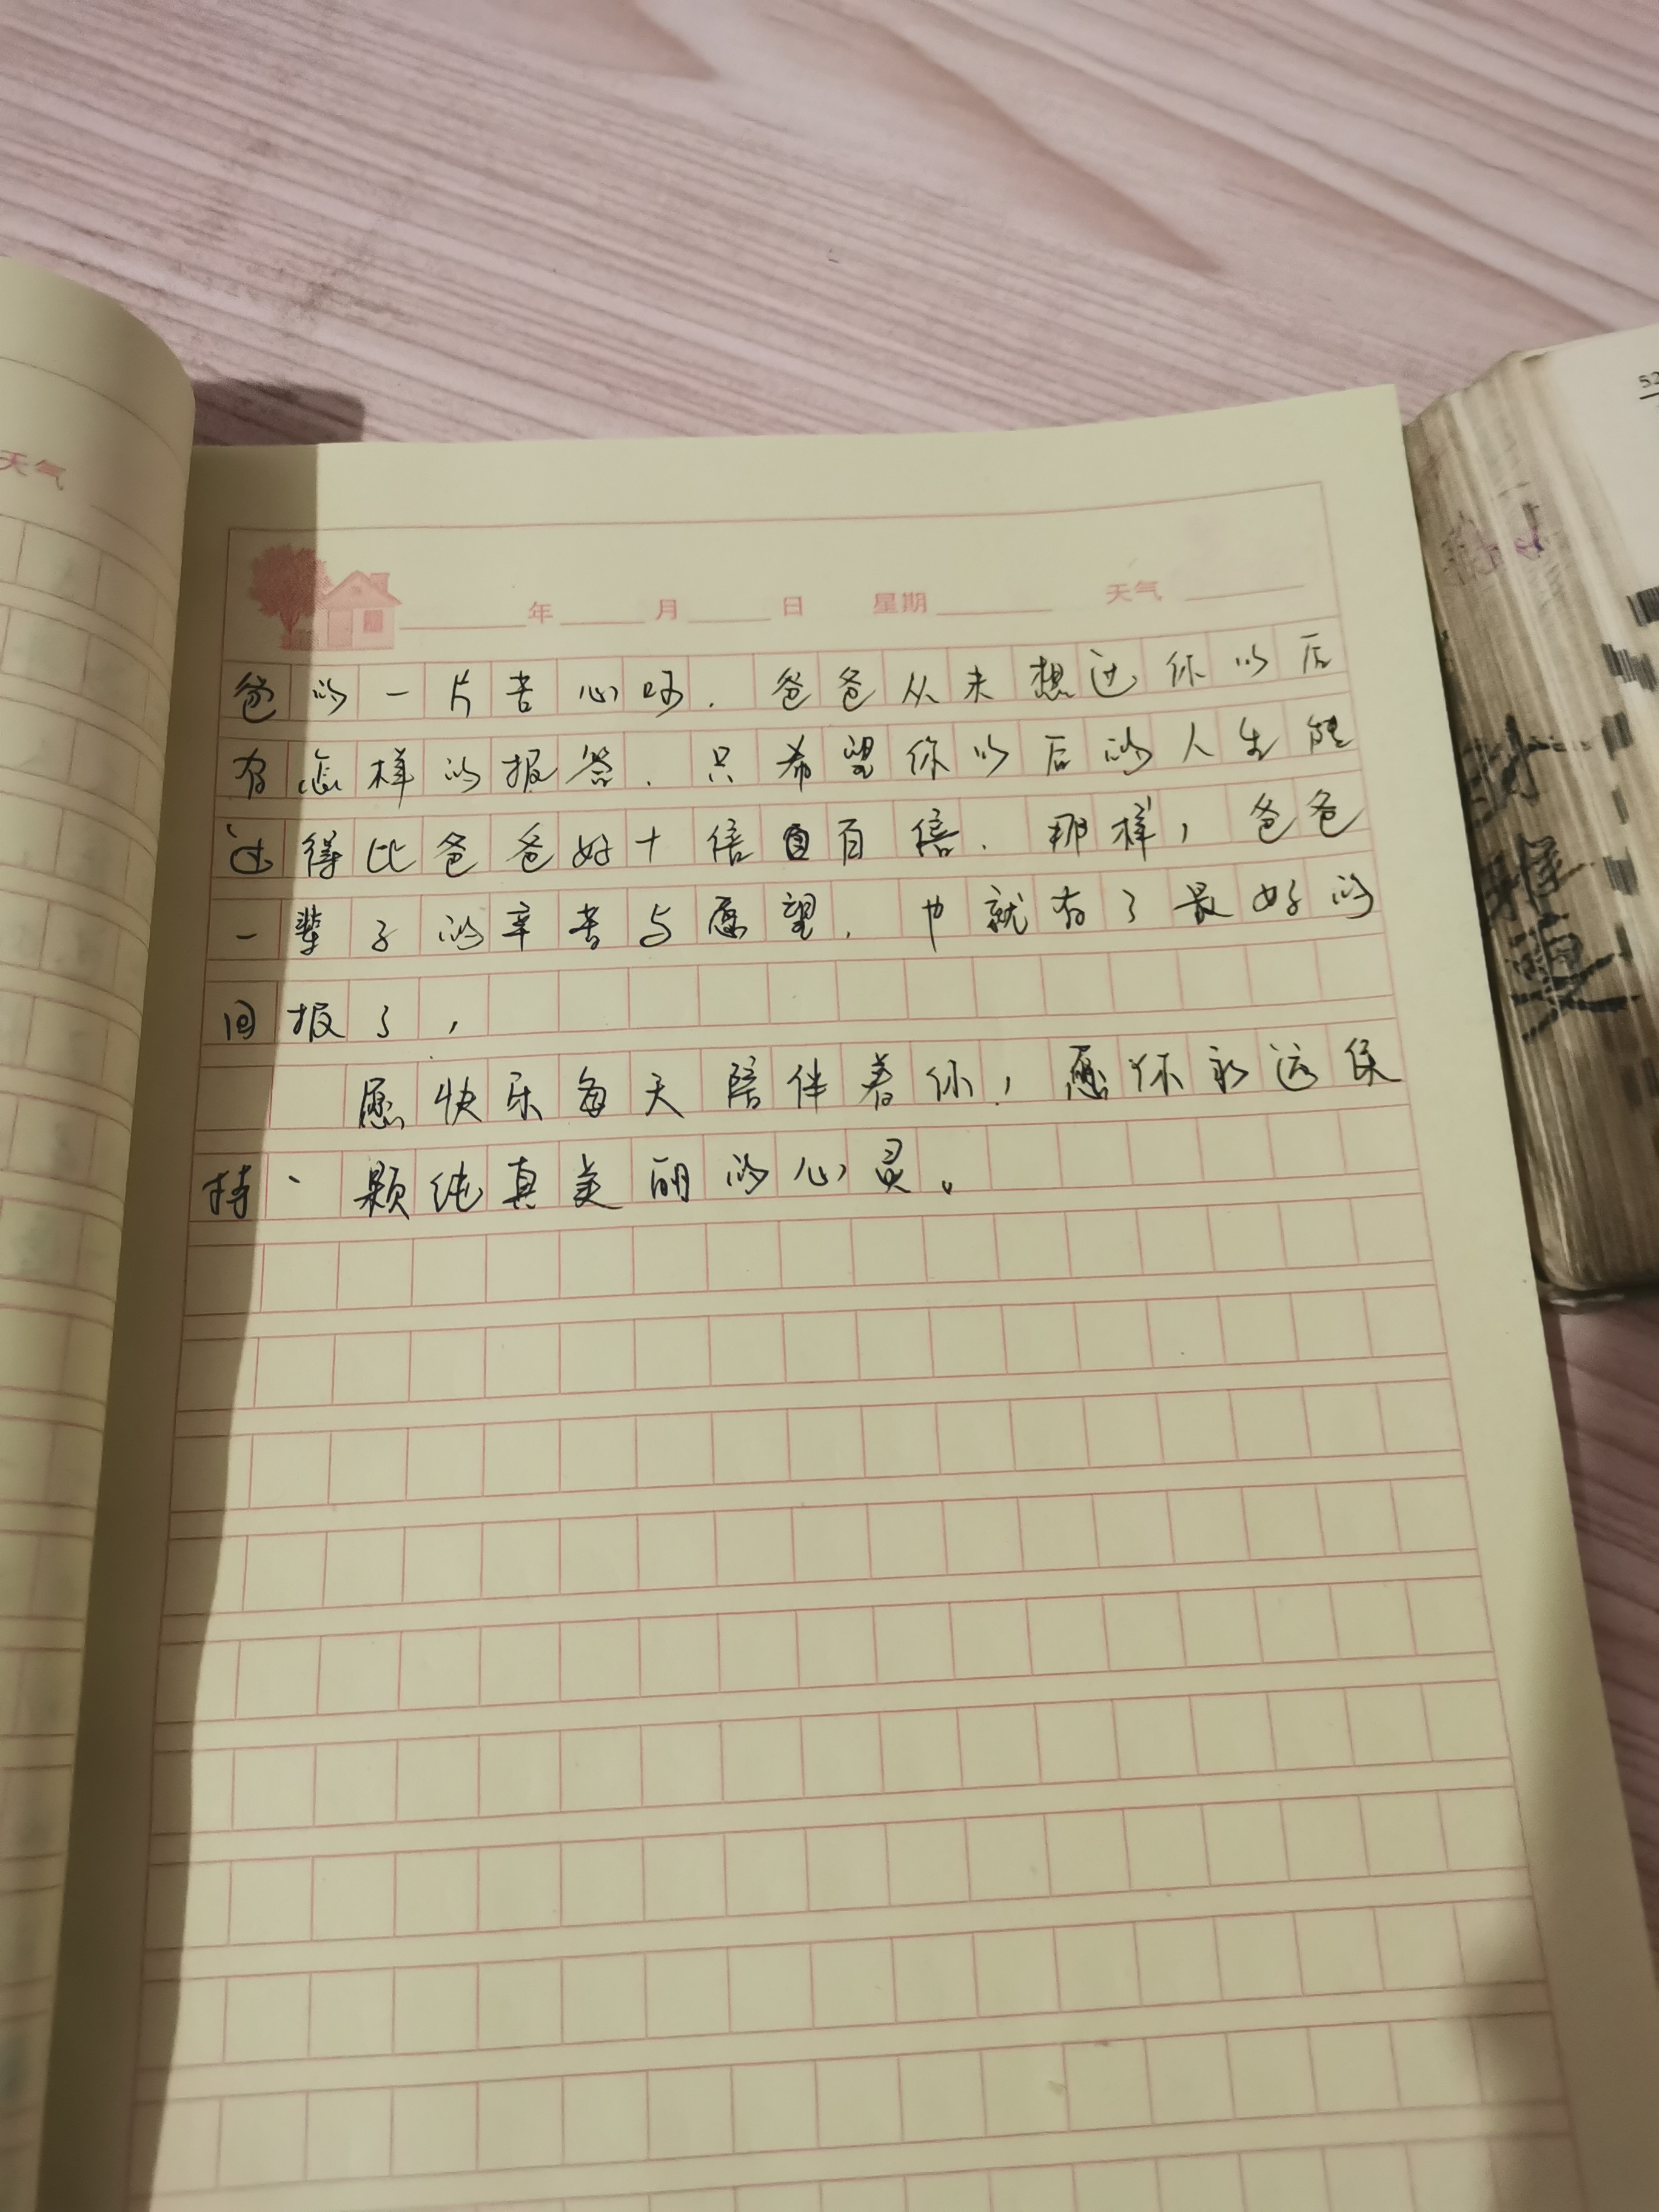 天气
52
年 月 日 星期 天气
爸的一片苦心呀.爸爸从未想过你以后
有怎样的报答.只希望你以后的人生能
过得比爸爸好十倍百倍.那样,爸爸
一辈子的辛苦与愿望.也就有了最好的
回报了,
愿快乐每天陪伴着你,愿你永远保
持一颗纯真美丽的心灵。